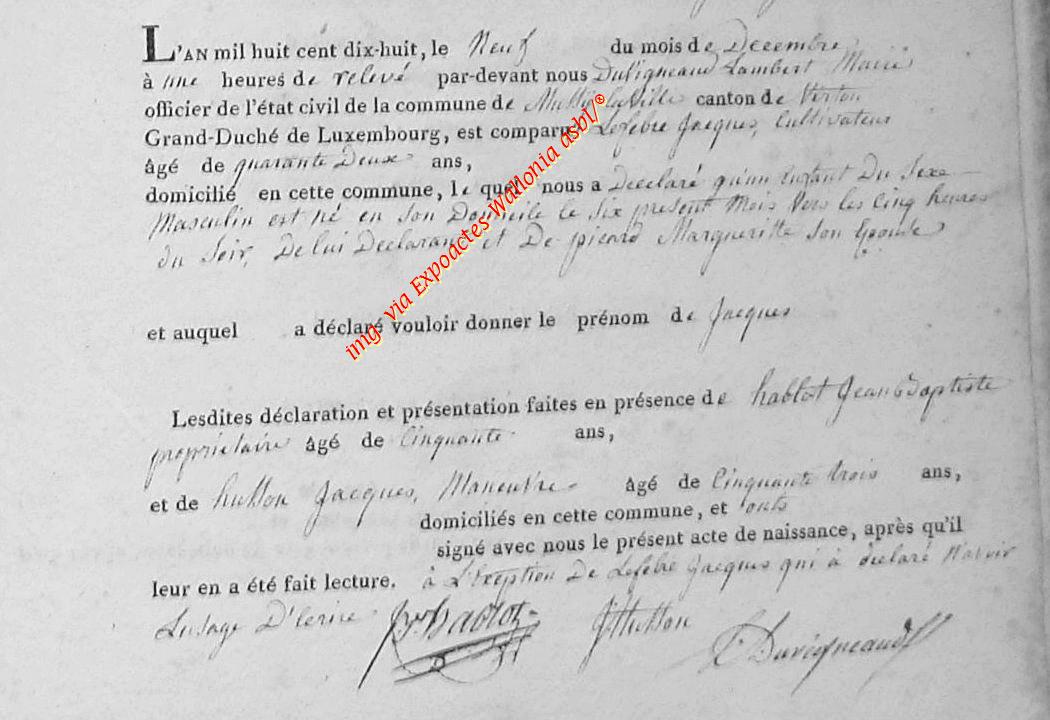 L'AN mil huit cent dix-huit, le Neuf du mois de Decembre
à une heures de relevé par-devant nous Duvigneaud Lambert Maire
officier de l'état civil de la commune de Mussy la Ville canton de Virton
Grand-Duché de Luxembourg, est comparu Lefebre Jacques, Cultivateur
âgé de quarante Deux ans,
domicilié en cette commune, le quel nous a Declaré qu'un Enfant Du Sexe
Masculin est né en Son Domicile le Six present Mois Vers les Cinq heures
du Soir, De lui Declarant et De picard Margueritte Son Epouse
et auquel a déclaré vouloir donner le prénom de Jacques
Lesdites déclaration et présentation faites en présence de hablot Jean Baptiste
proprietaire âgé de Cinquante ans,
et de husson Jacques, Maneuvre âgé de Cinquante trois ans,
domiciliés en cette commune, et onts
signé avec nous le présent acte de naissance, après qu'il
leur en a été fait lecture. à L'Exeption De Lefebre Jacques qui à declaré N'avoir
Lusage D'Ecrire JBte hablot JHusson Duvigneaud
img. via Expoactes-Wallonia asbl/®